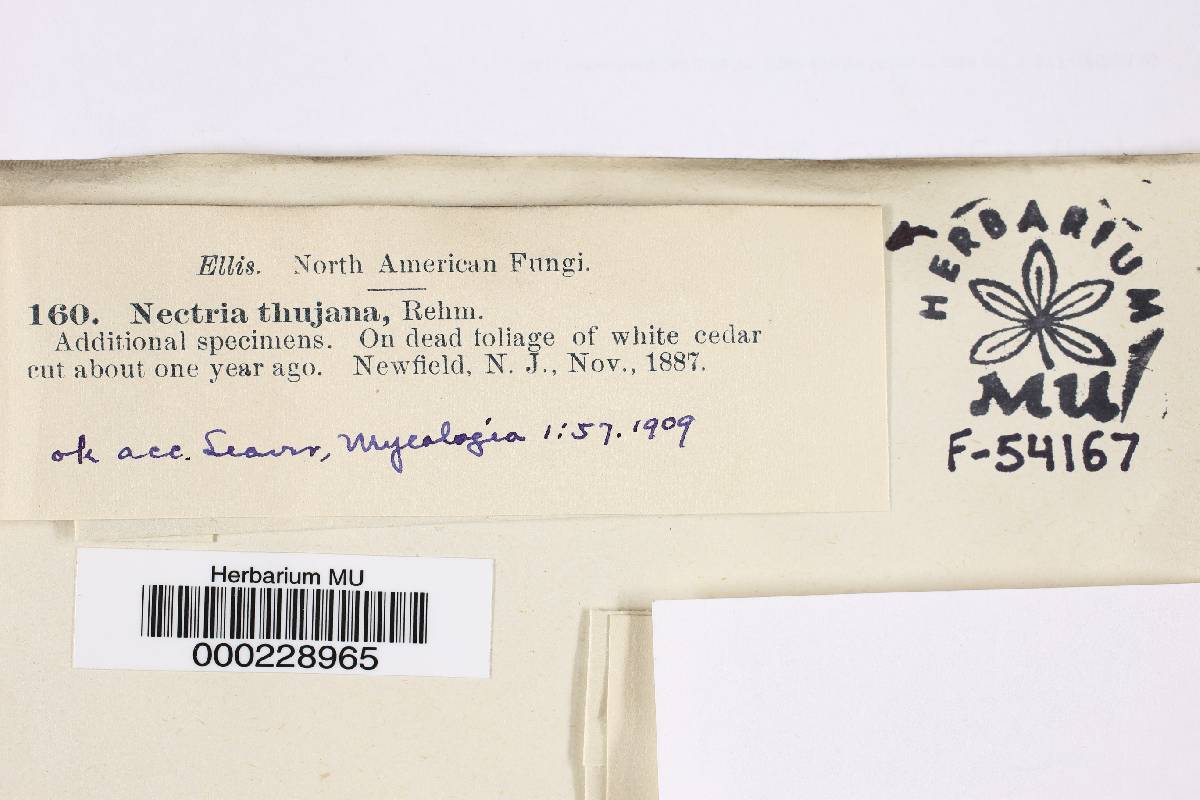 Ellis. North American Fungi.
160. Nectria thujana, Rehm.
Additional specimens. On dead foliage of white cedar
cut about one year ago. Newfield, N. J., Nov., 1887.
ok acc. Seaver, Mycologia 1:57. 1909
HERBARIUM
MU
F-54167
Herbarium MU
000228965